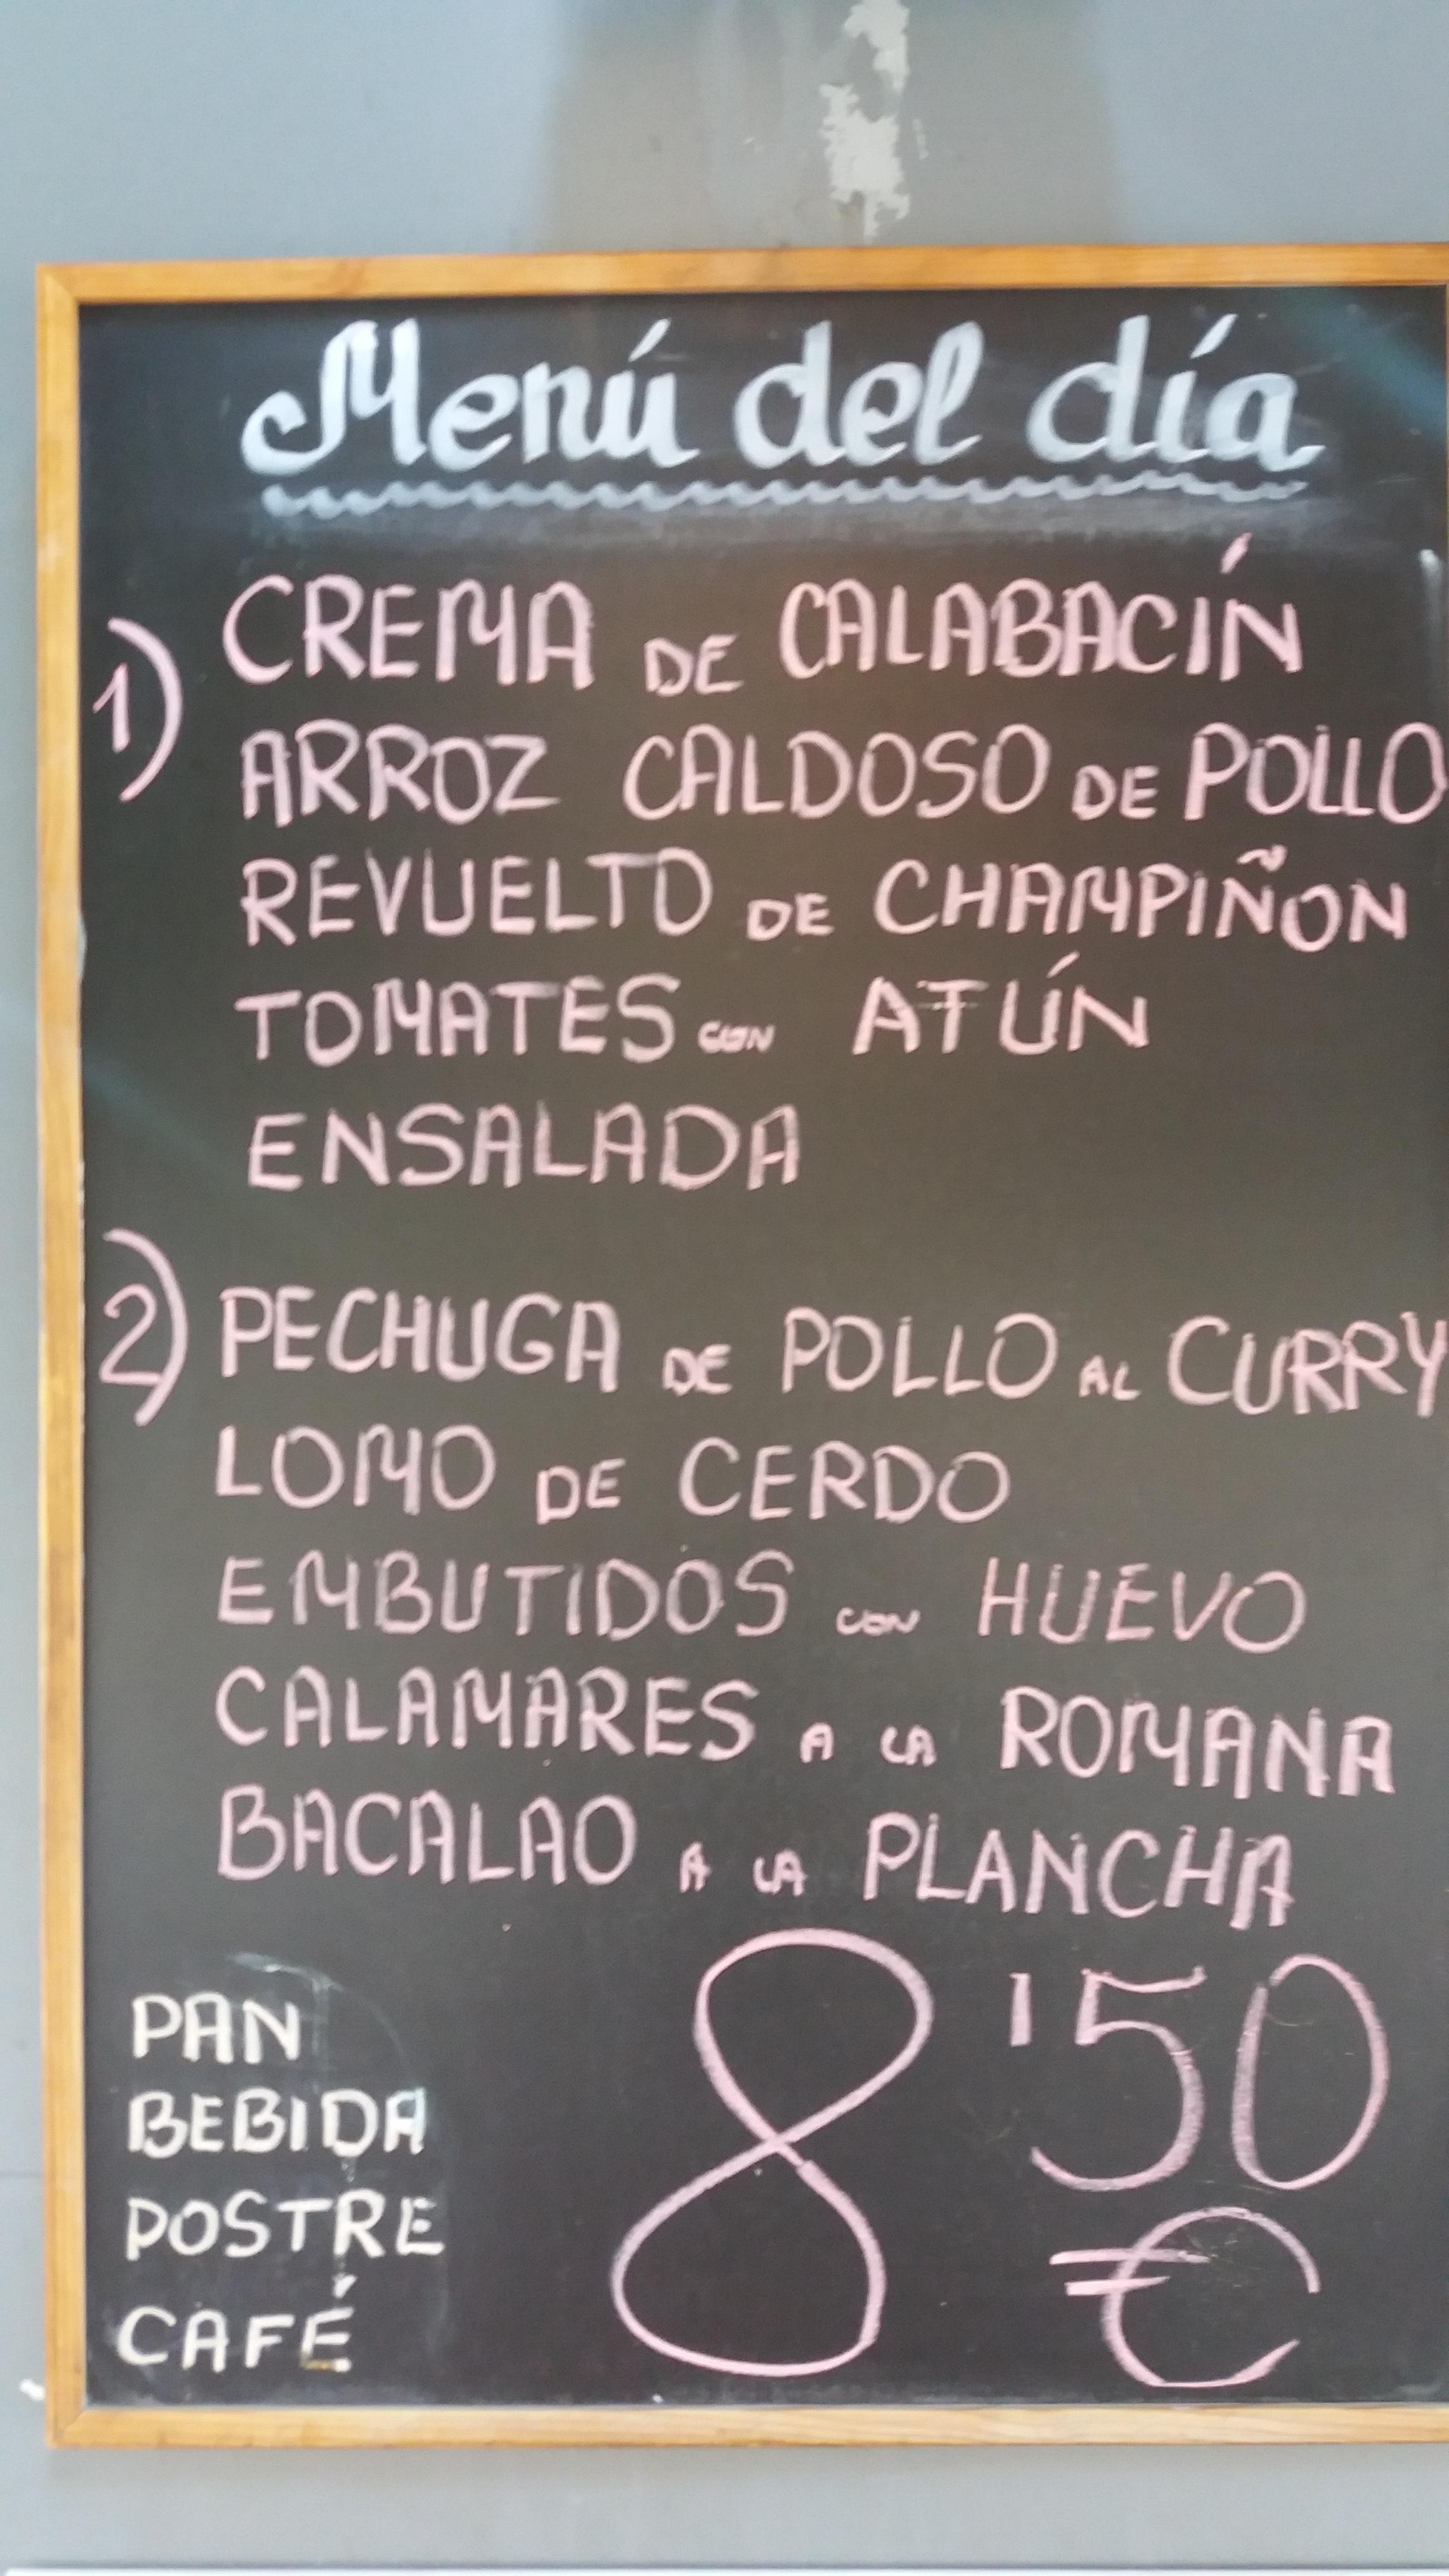 Menú del día
1) CREMA DE CALABACÍN
ARROZ CALDOSO DE POLLO
REVUELTO DE CHAMPIÑON
TOMATES CON ATÚN
ENSALADA
2) PECHUGA DE POLLO AL CURRY
LOMO DE CERDO
EMBUTIDOS CON HUEVO
CALAMARES A LA ROMANA
BACALAO A LA PLANCHA
PAN
BEBIDA
POSTRE
CAFÉ
8'50
€